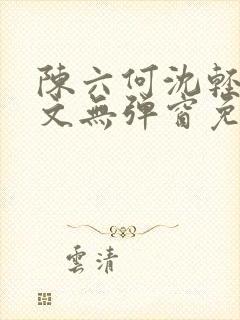 陳六何沈輕
文無彈窗免
雲清